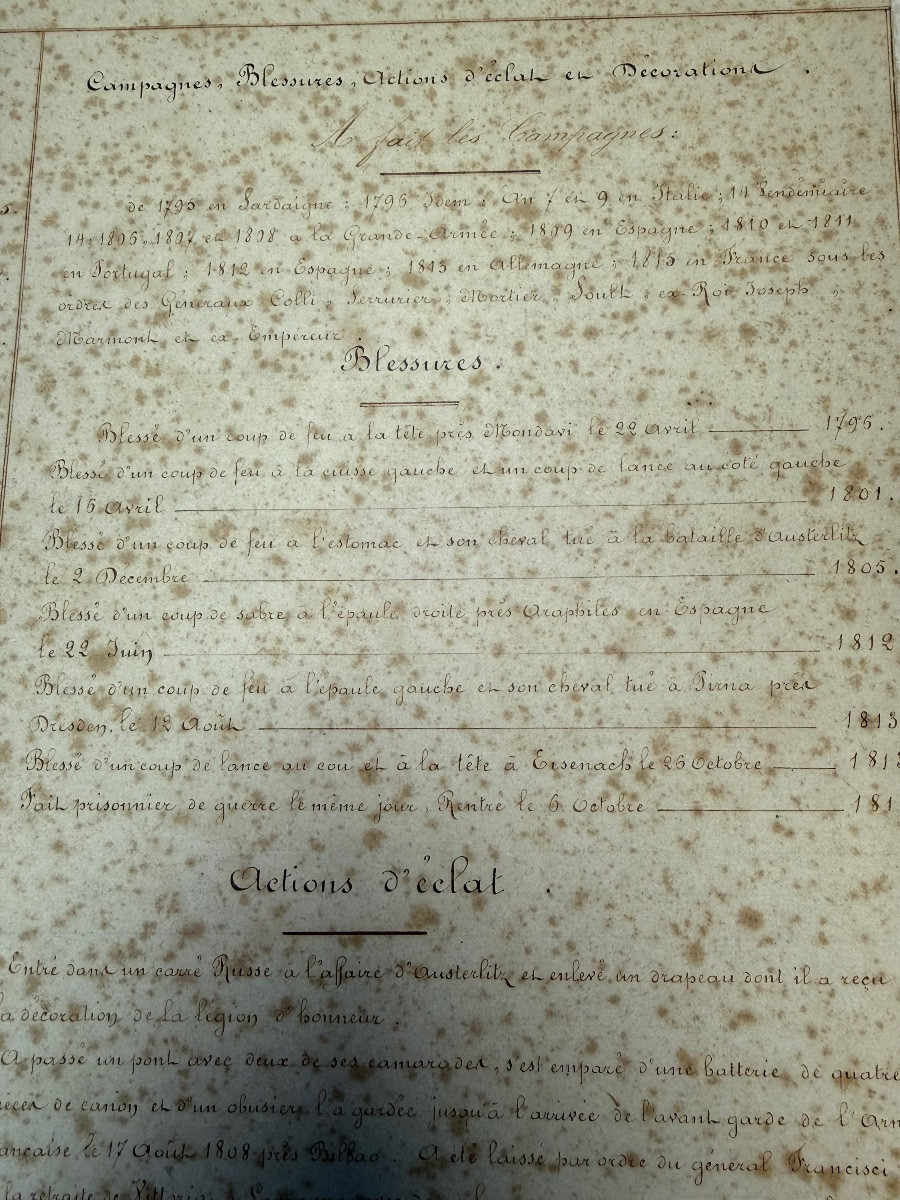 Campagnes, Blessures, Actions d'éclat et Décorations.
A fait les Campagnes:
5.
de 1795 en Sardaigne; 1796 Idem; An 7 et 9 en Italie; 14 Vendémiaire
14; 1806, 1807 et 1808 a la Grande-Armée; 1809 en Espagne; 1810 et 1811
en Portugal; 1812 en Espagne; 1813 en Allemagne; 1815 en France sous les
ordres des Généraux Colli, Serrurier, Mortier, Soult, ex-Roi Joseph,
Marmont et ex-Empereur.
Blessures.
Blessé d'un coup de feu à la tête près Mondavi le 22 Avril 1796.
Blessé d'un coup de feu à la cuisse gauche et un coup de lance au coté gauche
le 15 Avril 1801.
Blessé d'un coup de feu a l'estomac et son cheval tué à la bataille d'Austerlitz
le 2 Decembre 1805.
Blessé d'un coup de sabre a l'épaule droite près Araphiles en Espagne
le 22 Juin 1812
Blessé d'un coup de feu a l'épaule gauche et son cheval tué a Pirna pres
Dresden, le 12 Août 1813
Blessé d'un coup de lance au cou et à la tête à Eisenach le 26 Octobre 181
Fait prisonnier de guerre le même jour, Rentré le 6 Octobre 181
Actions d'éclat.
Entré dans un carré Russe a l'affaire d'Austerlitz et enlevé un drapeau dont il a reçu
la décoration de la légion d'honneur.
A passé un pont avec deux de ses camarades, s'est emparé d'une batterie de quatre
ièces de canon et d'un obusier, l'a gardée jusqu'à l'arrivée de l'avant garde de l'Arm
ançaise le 17 Août 1808 près Bilbao. A été laissé par ordre du général Francisci
la retraite de Vittoria